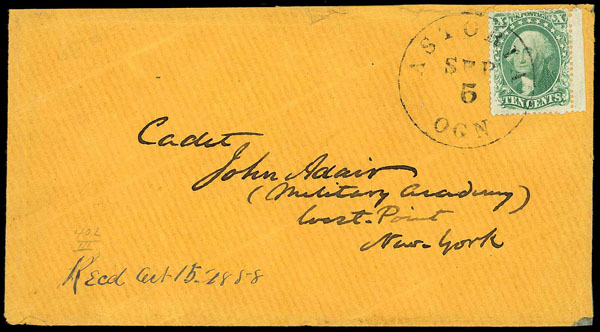 ASTORIA
SEP
5
OGN
X X
U.S. POSTAGE
TEN CENTS.
Cadet
John Adair
(Military Academy)
West-Point
New-York
Recd Oct 15-1858